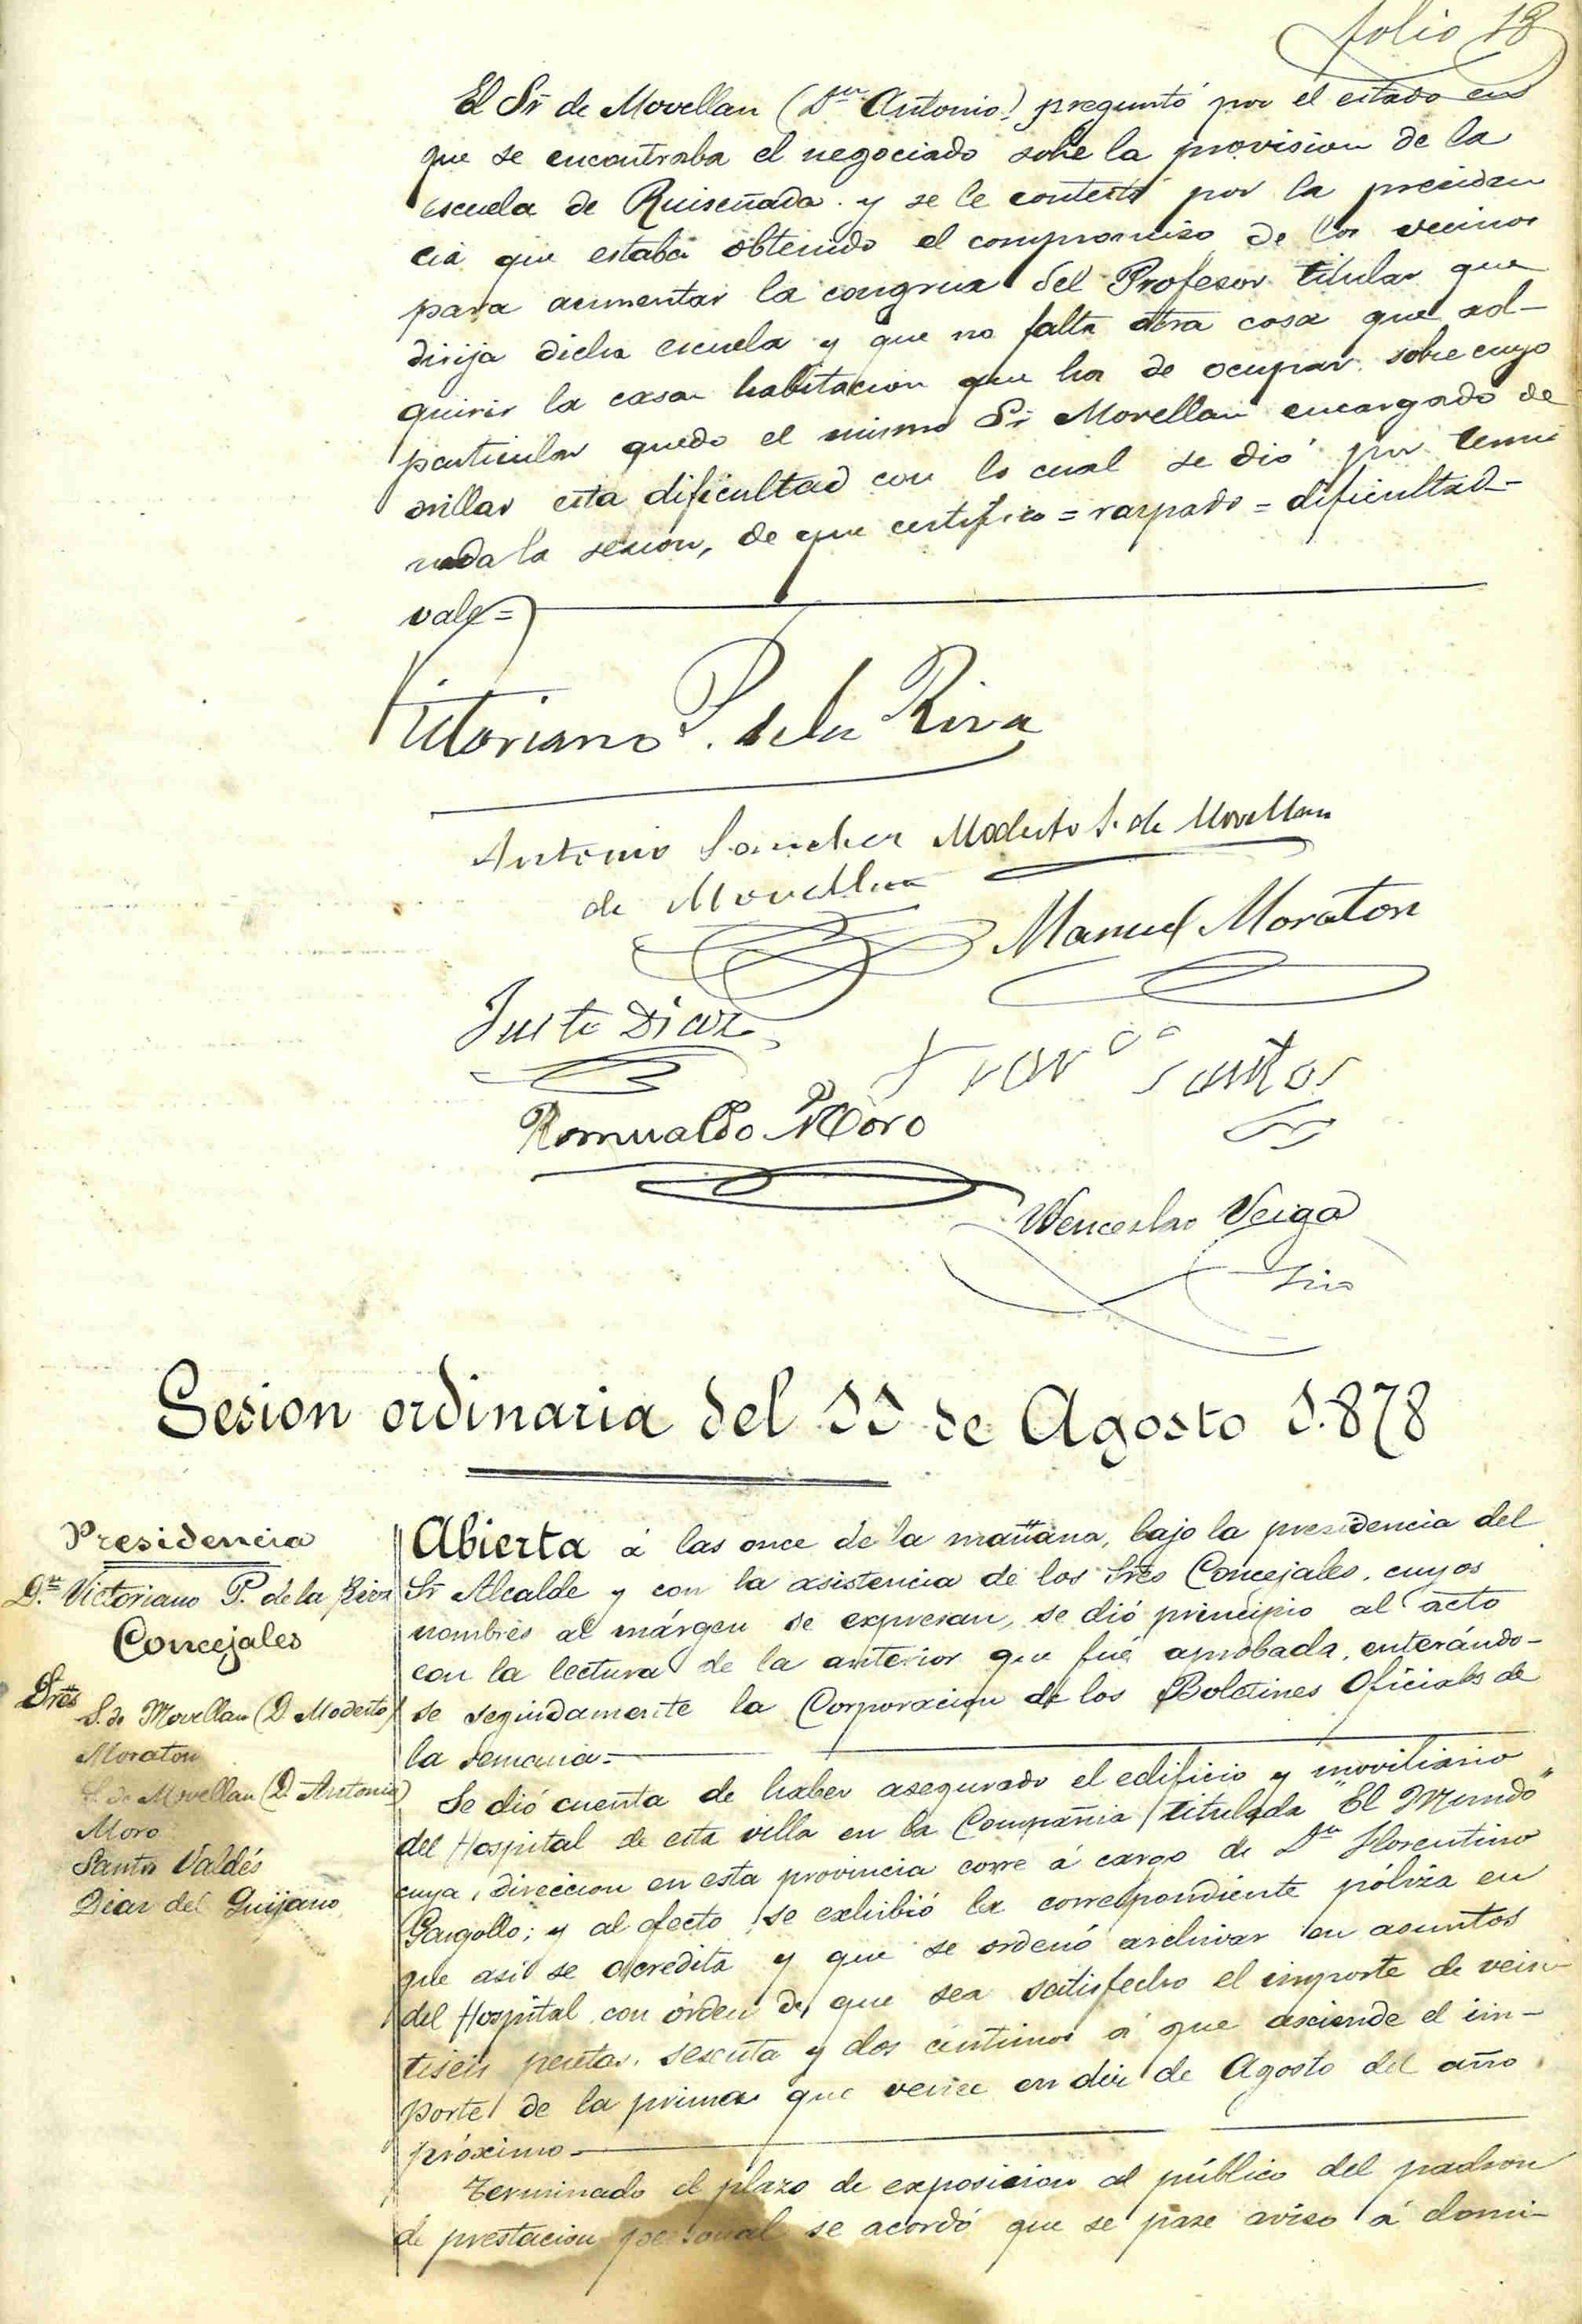 folio 18
El Sr de Movellan (Dn Antonio) preguntó por el estado en
que se encontraba el negociado sobre la provision de la
escuela de Ruiseñada y se le contestó por la presiden
cia que estaba obtenido el compromiso de los vecinos
para aumentar la congrua del Profesor titular que
dirija dicha escuela y que no falta otra cosa que ad-
quirir la casa habitacion que ha de ocupar, sobre cuyo
particular quedo el mismo Sr Movellan encargado de
orillar esta dificultad con lo cual se dió por termi
nada la sesion, de que certifico = raspado = dificultad-
vale=
Victoriano P. de la Riva
Antonio Sanchez Modesto S. de Movellan
de Movellan
Manuel Moraton
Justo Diaz
Franco Santos
Romualdo Moro
Wenceslao Veiga
Srio
Sesion ordinaria del 11 de Agosto 1.878
Presidencia
Dn Victoriano P. de la Riva
Concejales
Sres
S. de Movellan (D. Modesto)
Moraton
S. de Movellan (D. Antonio)
Moro
Santos Valdés
Diaz del Guijano
Abierta á las once de la mañana, bajo la presidencia del
Sr Alcalde y con la asistencia de los Sres Concejales, cuyos
nombres al márgen se expresan, se dió principio al acto
con la lectura de la anterior que fué aprobada, enterándo-
se seguidamente la Corporacion de los Boletines Oficiales de
la semana=
Se dió cuenta de haber asegurado el edificio y moviliario
del Hospital de esta villa en la Compañia titulada "El Mundo"
cuya direccion en esta provincia corre á cargo de Dn Florentino
Gargollo; y al efecto se exhibió la correspondiente póliza en
que asi se acredita y que se ordenó archivar en asuntos
del Hospital con órden de que sea satisfecho el importe de vein-
tiseis pesetas, sesenta y dos centimos á que asciende el im-
porte de la prima que vence en diez de Agosto del año
próximo-
Terminado el plazo de exposicion al público del padron
de prestacion personal se acordó que se pase aviso á domi-